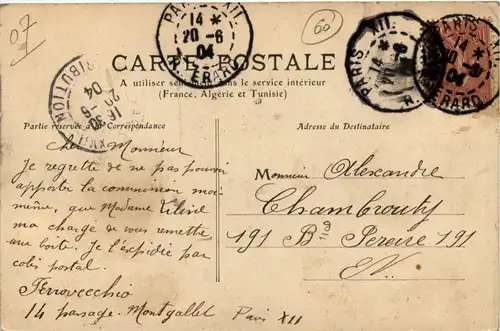 07
60
PARIS XII.
14 *
20 - 6
04
R. ERARD
PARIS XII.
PARIS XII.
R. ERARD
DISTRIBUTION
16 30
20 - 6
04
XVII
CARTE POSTALE
A utiliser seulement dans le service intérieur
(France, Algérie et Tunisie)
Partie réservée à la Correspondance
Adresse du Destinataire
Cher Monsieur
Je regrette de ne pas pouvoir
apporter la commission moi-
même, que Madame
m'a chargé de vous remettre
une boite. Je l'expédie par
colis postal.
Ferrovecchio
14 passage Montgallet Paris XII
Monsieur Alexandre
Chambrouty
191 Bd Pereire 191
EV.